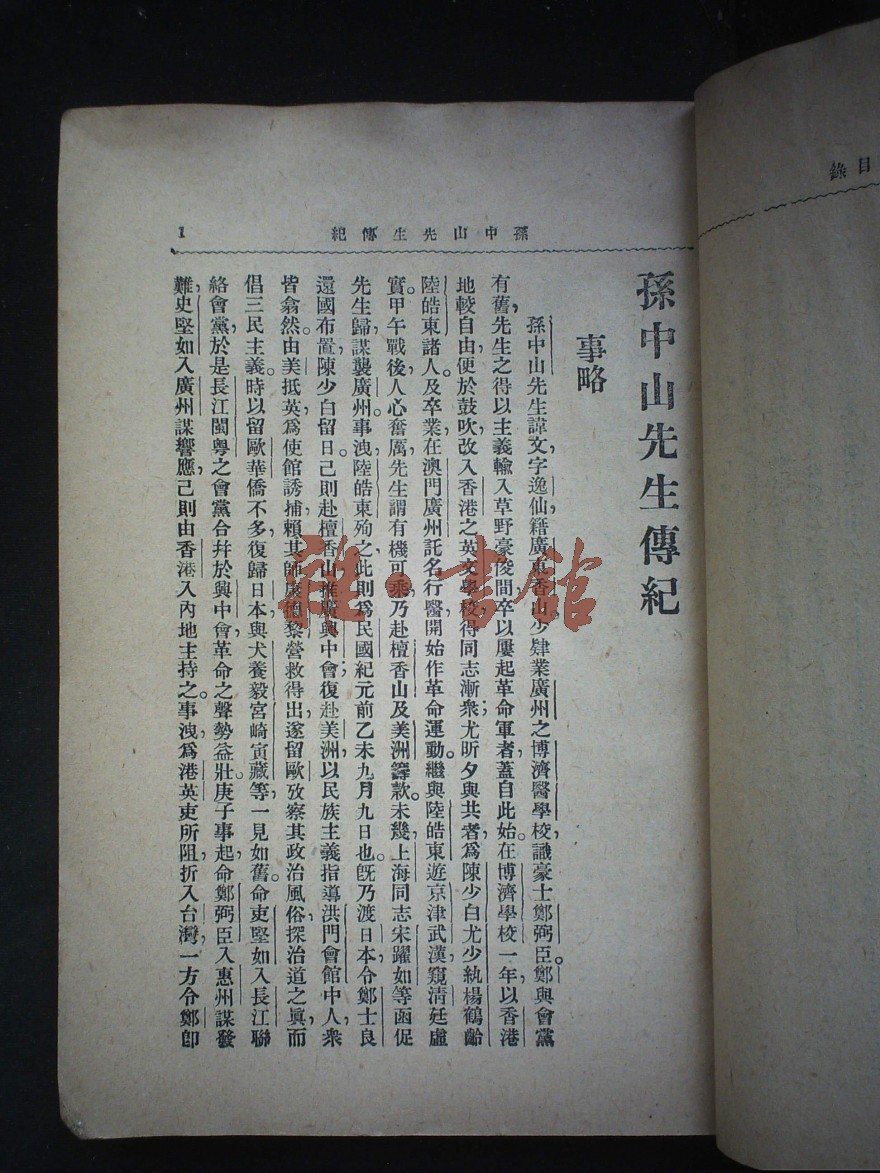 目錄
孫中山先生傳紀
1
孫中山先生傳紀
事略
孫中山先生諱文，字逸仙，籍廣東香山。少肄業廣州之博濟醫學校，識豪士鄭弼臣。鄭與會黨
有舊，先生之得以主義輸入草野豪俊間，卒以屢起革命軍者，蓋自此始。在博濟學校一年，以香港
地較自由，便於鼓吹，改入香港之英文學校，得同志漸衆；尤昕夕與共者，爲陳少白尤少紈楊鶴齡
陸皓東諸人。及卒業，在澳門廣州託名行醫，開始作革命運動。繼與陸皓東遊京津武漢，窺清廷虛
實。甲午戰後，人心奮厲，先生謂有機可乘，乃赴檀香山及美洲籌款。未幾，上海同志宋躍如等函促
先生歸，謀襲廣州。事洩，陸皓東殉之，此則爲民國紀元前乙未九月九日也。旣乃渡日本，令鄭士良
還國布置，陳少白留日。己則赴檀香山推廣興中會；復赴美洲，以民族主義指導洪門會館中人，衆
皆翕然。由美抵英，爲使館誘捕，賴其師康德黎營救得出，遂留歐攷察其政治風俗，探治道之眞，而
倡三民主義。時以留歐華僑不多，復歸日本，與犬養毅宮崎寅藏等一見如舊。命史堅如入長江聯
絡會黨，於是長江閩粤之會黨合幷於興中會，革命之聲勢益壯。庚子事起，命鄭弼臣入惠州謀發
難，史堅如入廣州謀響應，己則由香港入內地主持之。事洩，爲港英吏所阻，折入台灣，一方令鄭卽
雜·書館